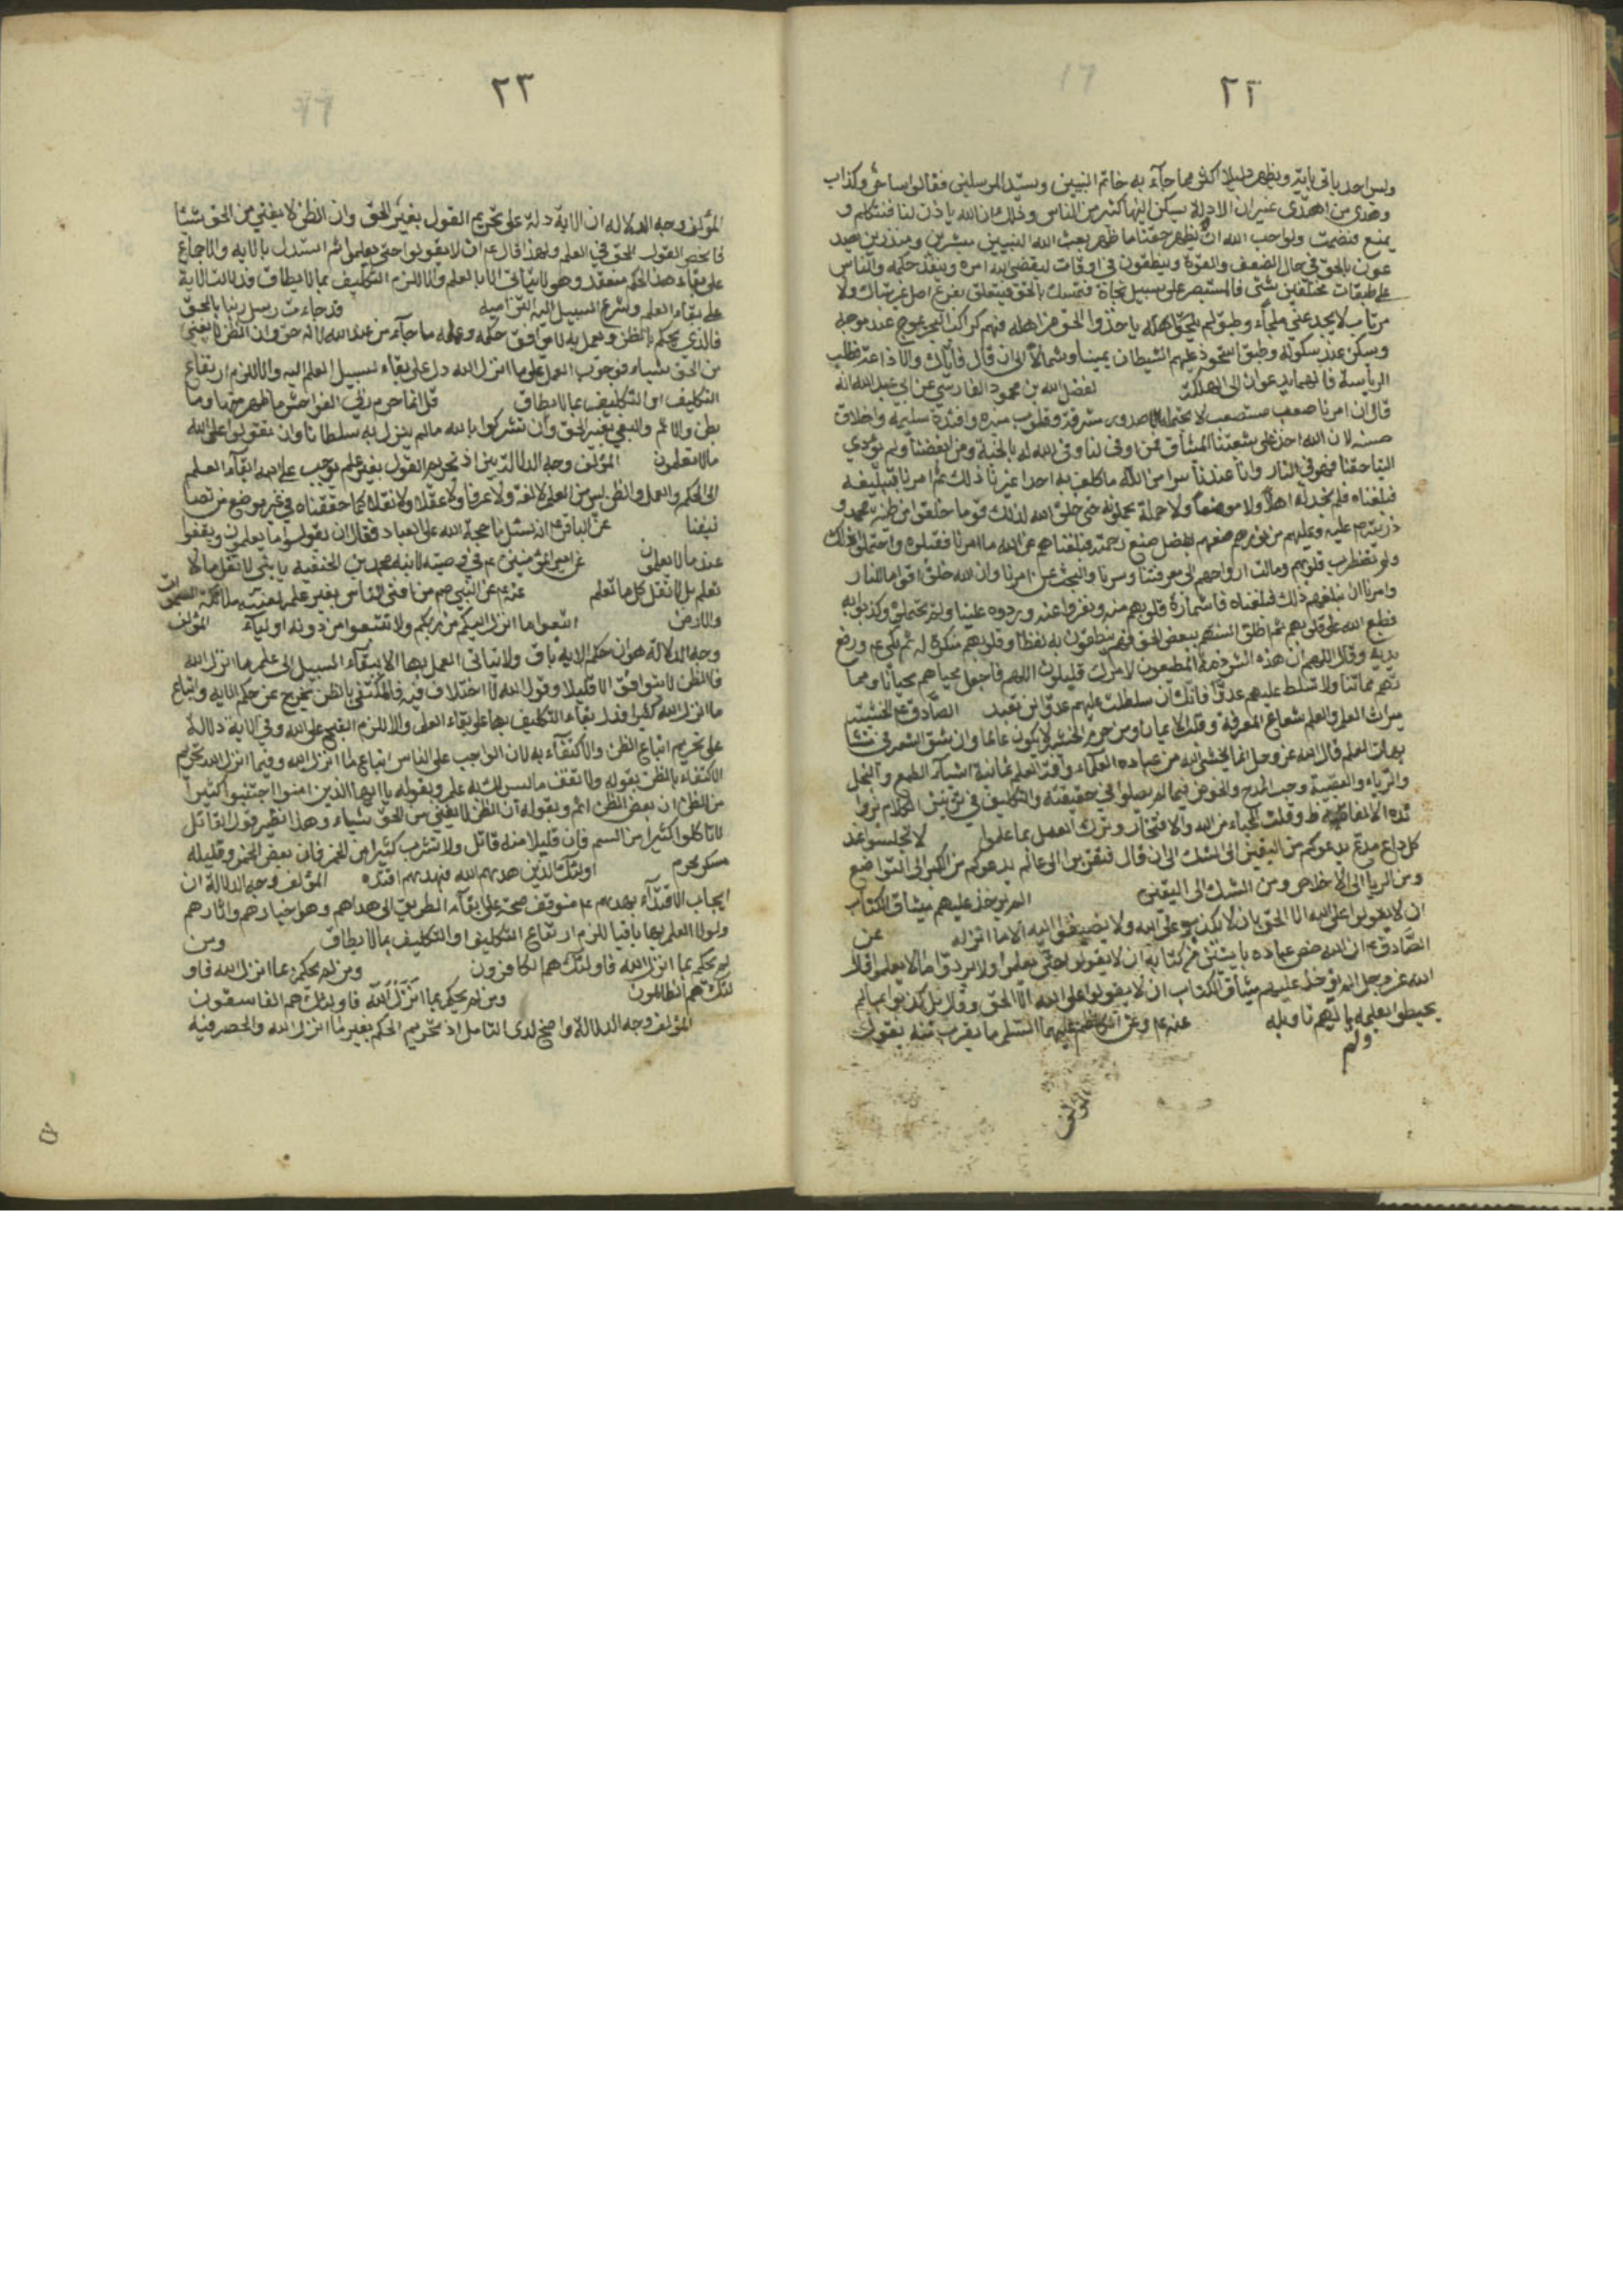 ٢٢
وليس احد ياتي باية ويظهر دليلا اكثر مما جآء به خاتم النبيين وسيد المرسلين فقالوا ساحر وكذاب
وهدى من اهتدى غير ان الادلة يسكن اليها كثير من الناس وذلك ان الله ياذن لنا فنتكلم و
يمنع فنصمت ولو احب الله ان يظهر حقنا ما ظهر بعث الله النبيين مبشرين ومنذرين يصد
عون بالحق في حال الضعف والقوة وينطقون في اوقات ليقضي الله امره وينفذ حكمه والناس
على طبقات مختلفين شتى فالمستبصر على سبيل نجاة متمسك بالحق فيتعلق بفرع اصل غير شاك ولا
مرتاب لا يجد عني ملجآء وطبق لم ياخذوا الحق من اهله فهم كراكب البحر يموج عند موجه
ويسكن عند سكونه وطبق استحوذ عليهم الشيطان يمينا وشمالا الى ان قال فاياك والاذاعة وطلب
الرياسة فانهما يدعوان الى الهلكة لفضل الله بن محمود الفارسي عن ابي عبد الله انه
قال ان امرنا صعب مستصعب لا يحتمله الا صدور مشرقة وقلوب منيرة وافئدة سليمة واخلاق
حسنة لان الله اخذ على شيعتنا الميثاق فمن اوفى لنا وفى الله له بالجنة ومن ابغضنا ولم يؤدي
الينا حقنا فهو في النار وان عندنا سرا من الله ما كلف به احدا غيرنا ذلك ثم امرنا بتبليغه
فبلغناه فلم نجد له اهلا ولا موضعا ولا حملة يحملونه حتى خلق الله لذلك قوما خلقوا من طينة محمد و
ذريته صلى عليه وعليهم من نورهم صنعهم بفضل صنع رحمته فبلغناهم عن الله ما امرنا فقبلوه واحتملوا ذلك
ولم تضطرب قلوبهم ومالت ارواحهم الى معرفتنا وسرنا والبحث عن امرنا وان الله خلق اقواما للنار
وامرنا ان نبلغهم ذلك فبلغناه فاشمأزت قلوبهم منه ونفروا عنه وردوه علينا ولم يحتملوه وكذبوا به
فطبع الله على قلوبهم ثم اطلق السنتهم ببعض الحق فهم ينطقون به لفظا وقلوبهم منكرة له ثم بكى عم ورفع
يديه وقال اللهم ان هذه الشرذمة المطيعون لامرك قليلون اللهم فاجعل محياهم محيانا ومما
تهم مماتنا ولا تسلط عليهم عدوا فانك ان سلطت عليهم عدوا لن تعبد الصادق عم الخشية
ميراث العلم والعلم شعاع المعرفة وقلب الايمان ومن حرم الخشية لا يكون عالما وان شق الشعر في متشا
بهات العلم قال الله عز وجل انما يخشى الله من عباده العلمآء وآفة العلم ثمانية اشيآء الطمع والبخل
والرياء والعصبية وحب المدح والخوض فيما لم يصلوا الى حقيقته والتكليف في تزيين الكلام بزوا
ئد الالفاظ وقلة الحياء من الله والافتخار وترك العمل بما علموا لا تجلسوا عند
كل داع مدع يدعوكم من اليقين الى الشك الى ان قال فتقربوا الى عالم يدعوكم من الكبر الى التواضع
ومن الريا الى الاخلاص ومن الشك الى اليقين الم يؤخذ عليهم ميثاق الكتاب
ان لا يقولوا على الله الا الحق بان لا يكذبوا على الله ولا يضيفوا اليه الا ما انزله عن
الصادق عم ان الله خص عباده بايتين من كتابه ان لا يقولوا حتى يعلموا ولا يردوا ما لا يعلموا قال
الله عز وجل الم يؤخذ عليهم ميثاق الكتاب ان لا يقولوا على الله الا الحق وقال بل كذبوا بما لم
يحيطوا بعلمه ولما ياتهم تاويله عنه عم وعن الكاظم عليهما السلم ما يقرب منه بقول
ولم
المؤلف
٢٣
المؤلف وجه الدلالة ان الاية دلة على تحريم القول بغير الحق وان الظن لا يغني من الحق شيئا
فانحصر القول بالحق في العلم ولهذا قال عم ان لا يقولوا حتى يعلموا ثم استدل بالاية والاجماع
على بقاء هذا الحكم منعقد وهو لا يتاتى الا بالعلم والا للزم التكليف بما لا يطاق فدلت الاية
على بقاء العلم وشرع السبيل اليه التزاميه قد جاءت رسل ربنا بالحق
فالذي يحكم بالظن ويعمل به لا يوافق حكمه وعمله ما جآء من عند الله لانه حق وان الظن لا يغني
من الحق شياء فوجوب العمل على ما انزل الله دل على بقاء سبيل العلم اليه والا للزم ارتفاع
التكليف او التكليف بما لا يطاق قل انما حرم ربي الفواحش ما ظهر منها وما
بطن والاثم والبغي بغير الحق وان تشركوا بالله مالم ينزل به سلطانا وان تقولوا على الله
مالا تعلمون المؤلف وجه الدلالة بين اذ تحريم القول بغير علم يوجب على الله ابقآء العلم
الى الحكم والعمل والظن ليس من العلم لا لغة ولا عرفا ولا عقلا ولا نقلا كما حققناه في غير موضع من تصا
نيفنا عن الباقر عم انه سئل ما حجة الله على العباد فقال ان يقولوا ما يعلمون ويقفوا
عند ما لا يعلمون عن امير المؤمنين عم في وصيته لابنه محمد بن الحنفيه يا بني لا تقل مالا
تعلم بل لا تقل كل ما تعلم عنه عم عن النبي صم من افتى الناس بغير علم لعنته ملائكة السموات
والارض اتبعوا ما انزل اليكم من ربكم ولا تتبعوا من دونه اوليآء المؤلف
وجه الدلالة هو ان حكم الاية باق ولا يتاتى العمل بها الا ببقآء السبيل الى علم ما انزل الله
فالظن لا يتوافق الا قليلا وقول الله لا اختلاف فيه فالمكتفي بالظن يخرج عن حكم الاية واتباع
ما انزل الله كثيرا فدل بقاء التكليف بها على بقاء العلم والا للزم القبح على الله وفي الاية دلالة
على تحريم اتباع الظن والاكتفآء به لان الواجب على الناس اتباع ما انزل الله وفيما انزل الله تحريم
الاكتفاء بالظن بقوله ولا تقف ماليس لك به علم وبقوله يا ايها الذين امنوا اجتنبوا كثيرا
من الظن ان بعض الظن اثم وبقوله ان الظن لا يغني من الحق شياء وهذا نظير قول القائل
لا تاكلوا كثيرا من السم فان قليلا منه قاتل ولا تشرب كثيرا من الخمر فان بعض الخمر وقليله
مسكر محرم اولئك الذين هديهم الله فبهديهم اقتده المؤلف وجه الدلالة ان
ايجاب الاقتدآء بهديهم عم متوقف صحته على بقآء الطريق الى هداهم وهو اخبارهم واثارهم
ولولا العلم بها باقيا للزم ارتفاع التكليف او التكليف بما لا يطاق ومن
لم يحكم بما انزل الله فاولئك هم الكافرون ومن لم يحكم بما انزل الله فاو
لئك هم الظالمون ومن لم يحكم بما انزل الله فاولئك هم الفاسقون
المؤلف وجه الدلالة واضح لدى التامل اذ تحريم الحكم بغير ما انزل الله والحصر فيه